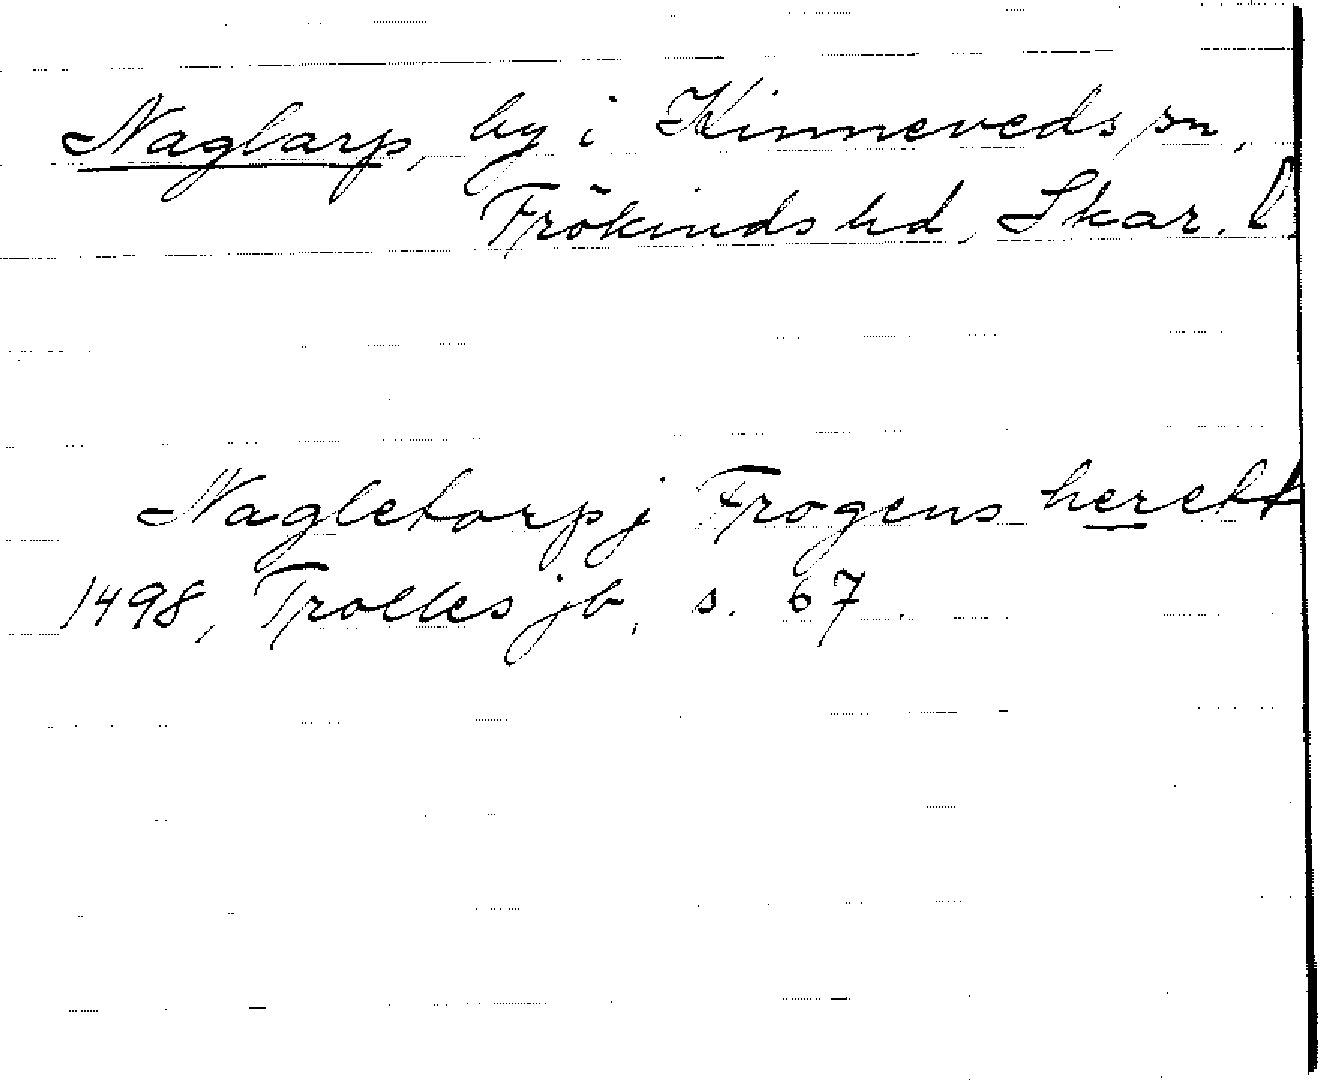 Naglarp, by i Kinneveds sn,
Frökinds hd, Skar. l.
Nagletorp j Frogens herett
1498, Trolles jb, s. 67.